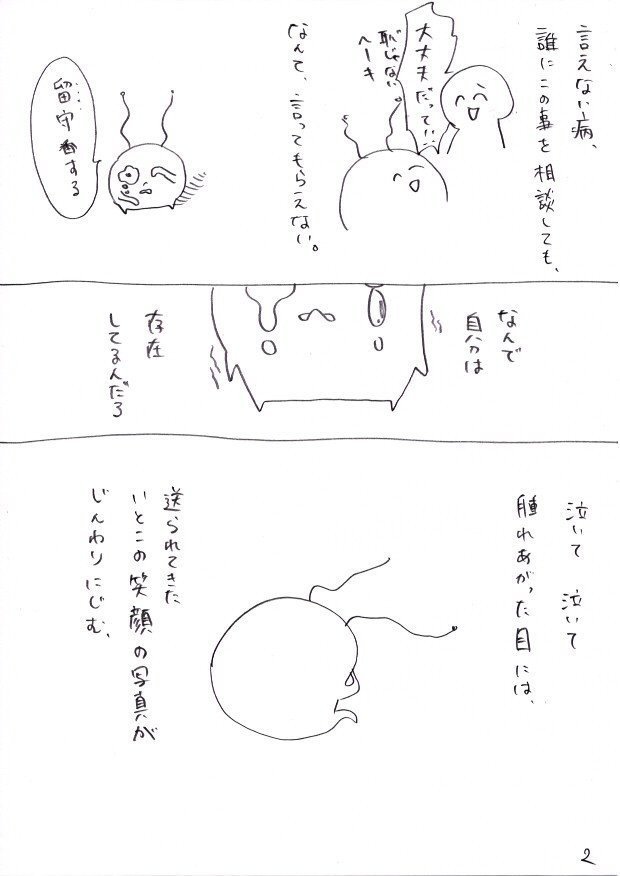 言えない病、
誰にこの事を相談しても、
大丈夫だって!!
恥じゃない。
へーキ
なんて、言ってもらえない。
……留守番する
なんで
自分は
存在
してるんだろ
泣いて 泣いて
腫れあがった目には、
送られてきた
いとこの笑顔の写真が
じんわりにじむ、
2